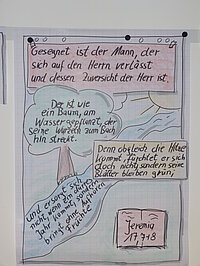 Gesegnet ist der Mann, der
sich auf den Herrn verlässt
und dessen Zuversicht der Herr ist.
Der ist wie
ein Baum, am
Wasser gepflanzt, der
seine Wurzeln zum Bach
hin streckt.
Denn obgleich die Hitze
kommt, fürchtet er sich
doch nicht, sondern seine
Blätter bleiben grün;
und er sorgt sich
nicht, wenn ein dürres
Jahr kommt, sondern
bringt ohne Aufhören
Früchte
Jeremia
17,7+8